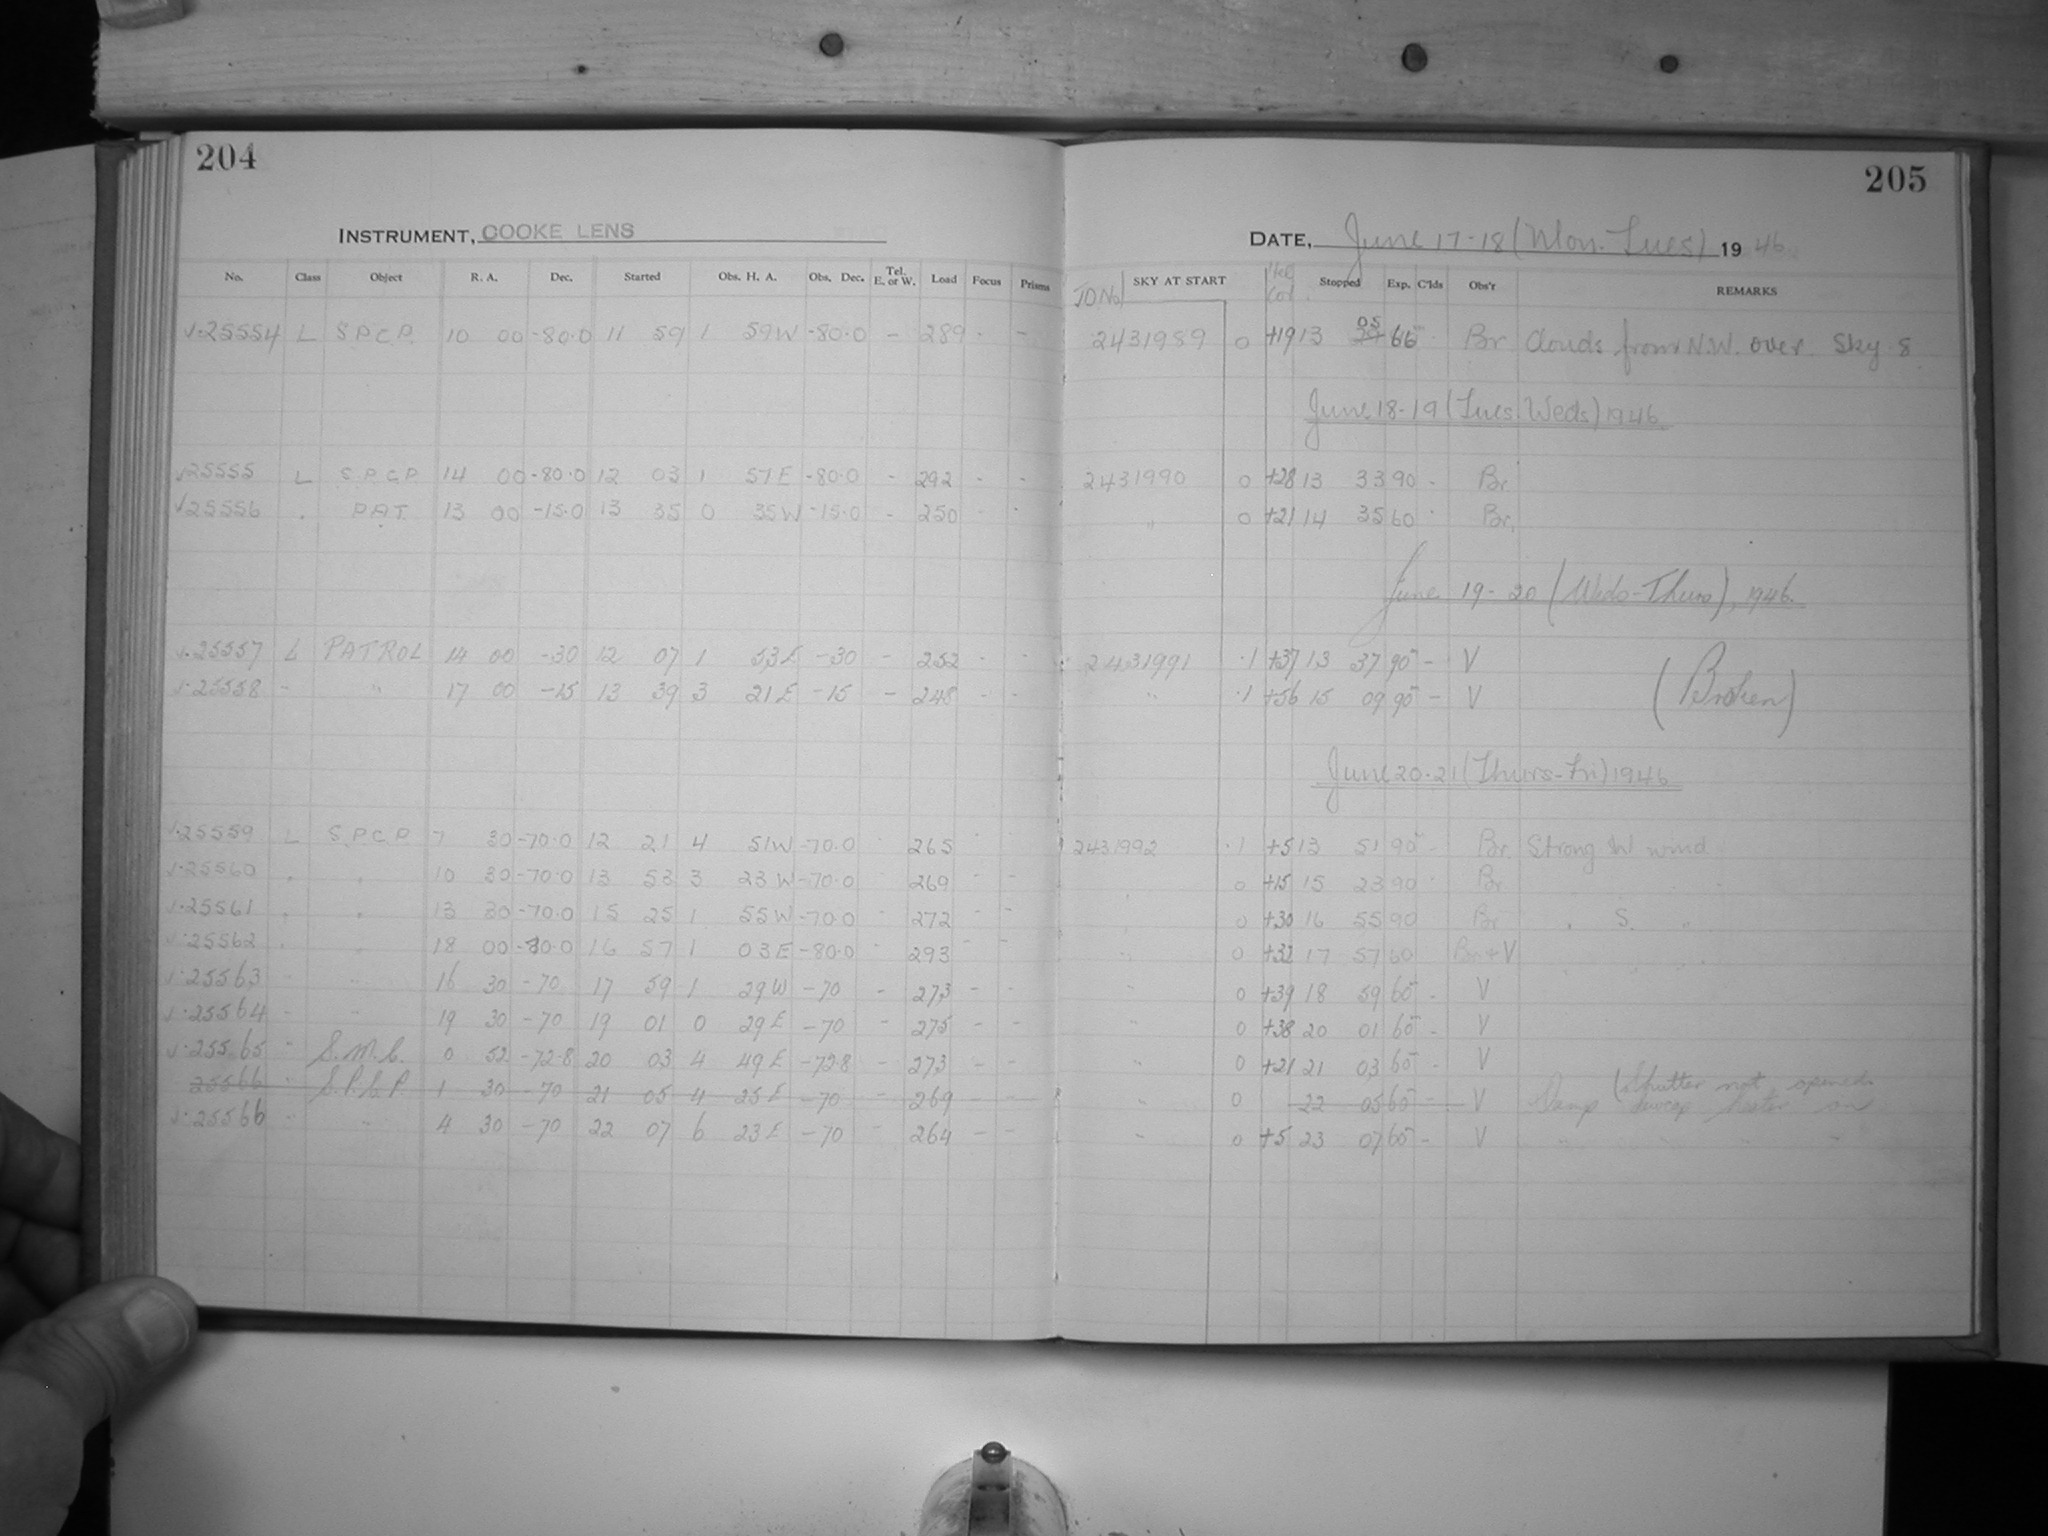 204
INSTRUMENT, COOKE LENS
No. Class Object R. A. Dec. Started Obs. H. A. Obs. Dec. Tel. E. or W. Load Focus Prisms
√·25554 L S.P.C.P. 10 00 -80.0 11 59 1 59W -80.0 - 289 - -
√25555 L S.P.C.P. 14 00 -80.0 12 03 1 57E -80.0 - 292 - -
√25556 . PAT. 13 00 -15.0 13 35 0 35W -15.0 - 250 - -
√·25557 L PATROL 14 00 -30 12 07 1 53E -30 - 252 - -
√·25558 - " 17 00 -15 13 39 3 21E -15 - 248 - -
√·25559 L S.P.C.P. 7 30 -70.0 12 21 4 51W -70.0 265
√·25560 . . 10 30 -70.0 13 53 3 23W -70.0 269
√·25561 . . 13 30 -70.0 15 25 1 55W -70.0 - 272 - -
√·25562 . . 18 00 -80.0 16 57 1 03E -80.0 293 - -
√·25563 - " 16 30 -70 17 59 1 29W -70 - 273 - -
√·25564 - " 19 30 -70 19 01 0 29E -70 - 275 - -
√·25565 " S.M.C. 0 52 -72.8 20 03 4 49E -72.8 - 273 - -
25566 " S.P.C.P. 1 30 -70 21 05 4 25E -70 - 269 - -
√·25566 " " 4 30 -70 22 07 6 23E -70 - 264 - -
205
DATE, June 17-18 (Mon.-Tues) 1946
JD No. SKY AT START Hel Cor. Stopped Exp. C'lds Obs'r REMARKS
2431989 0 +19 13 05 66 Br Clouds from N.W. over. Sky 8
June 18-19 (Tues Weds) 1946
2431990 0 +28 13 33 90 - Br.
" 0 +21 14 35 60 Br.
June 19-20 (Weds-Thurs), 1946.
2431991 ·1 +37 13 37 90 - V
" ·1 +56 15 09 90 - V (Broken)
June 20-21 (Thurs-Fri) 1946
2431992 ·1 +5 13 51 90 - Br. Strong W wind
0 +15 15 23 90 Br
0 +30 16 55 90 Br . S. "
" 0 +32 17 57 60 Br + V
" 0 +39 18 59 60 - V
" 0 +38 20 01 60 - V
" 0 +21 21 03 60 - V
(Shutter not opened
" 0 22 05 60 - V Damp dewcap heater on
" 0 +5 23 07 60 - V " " " "